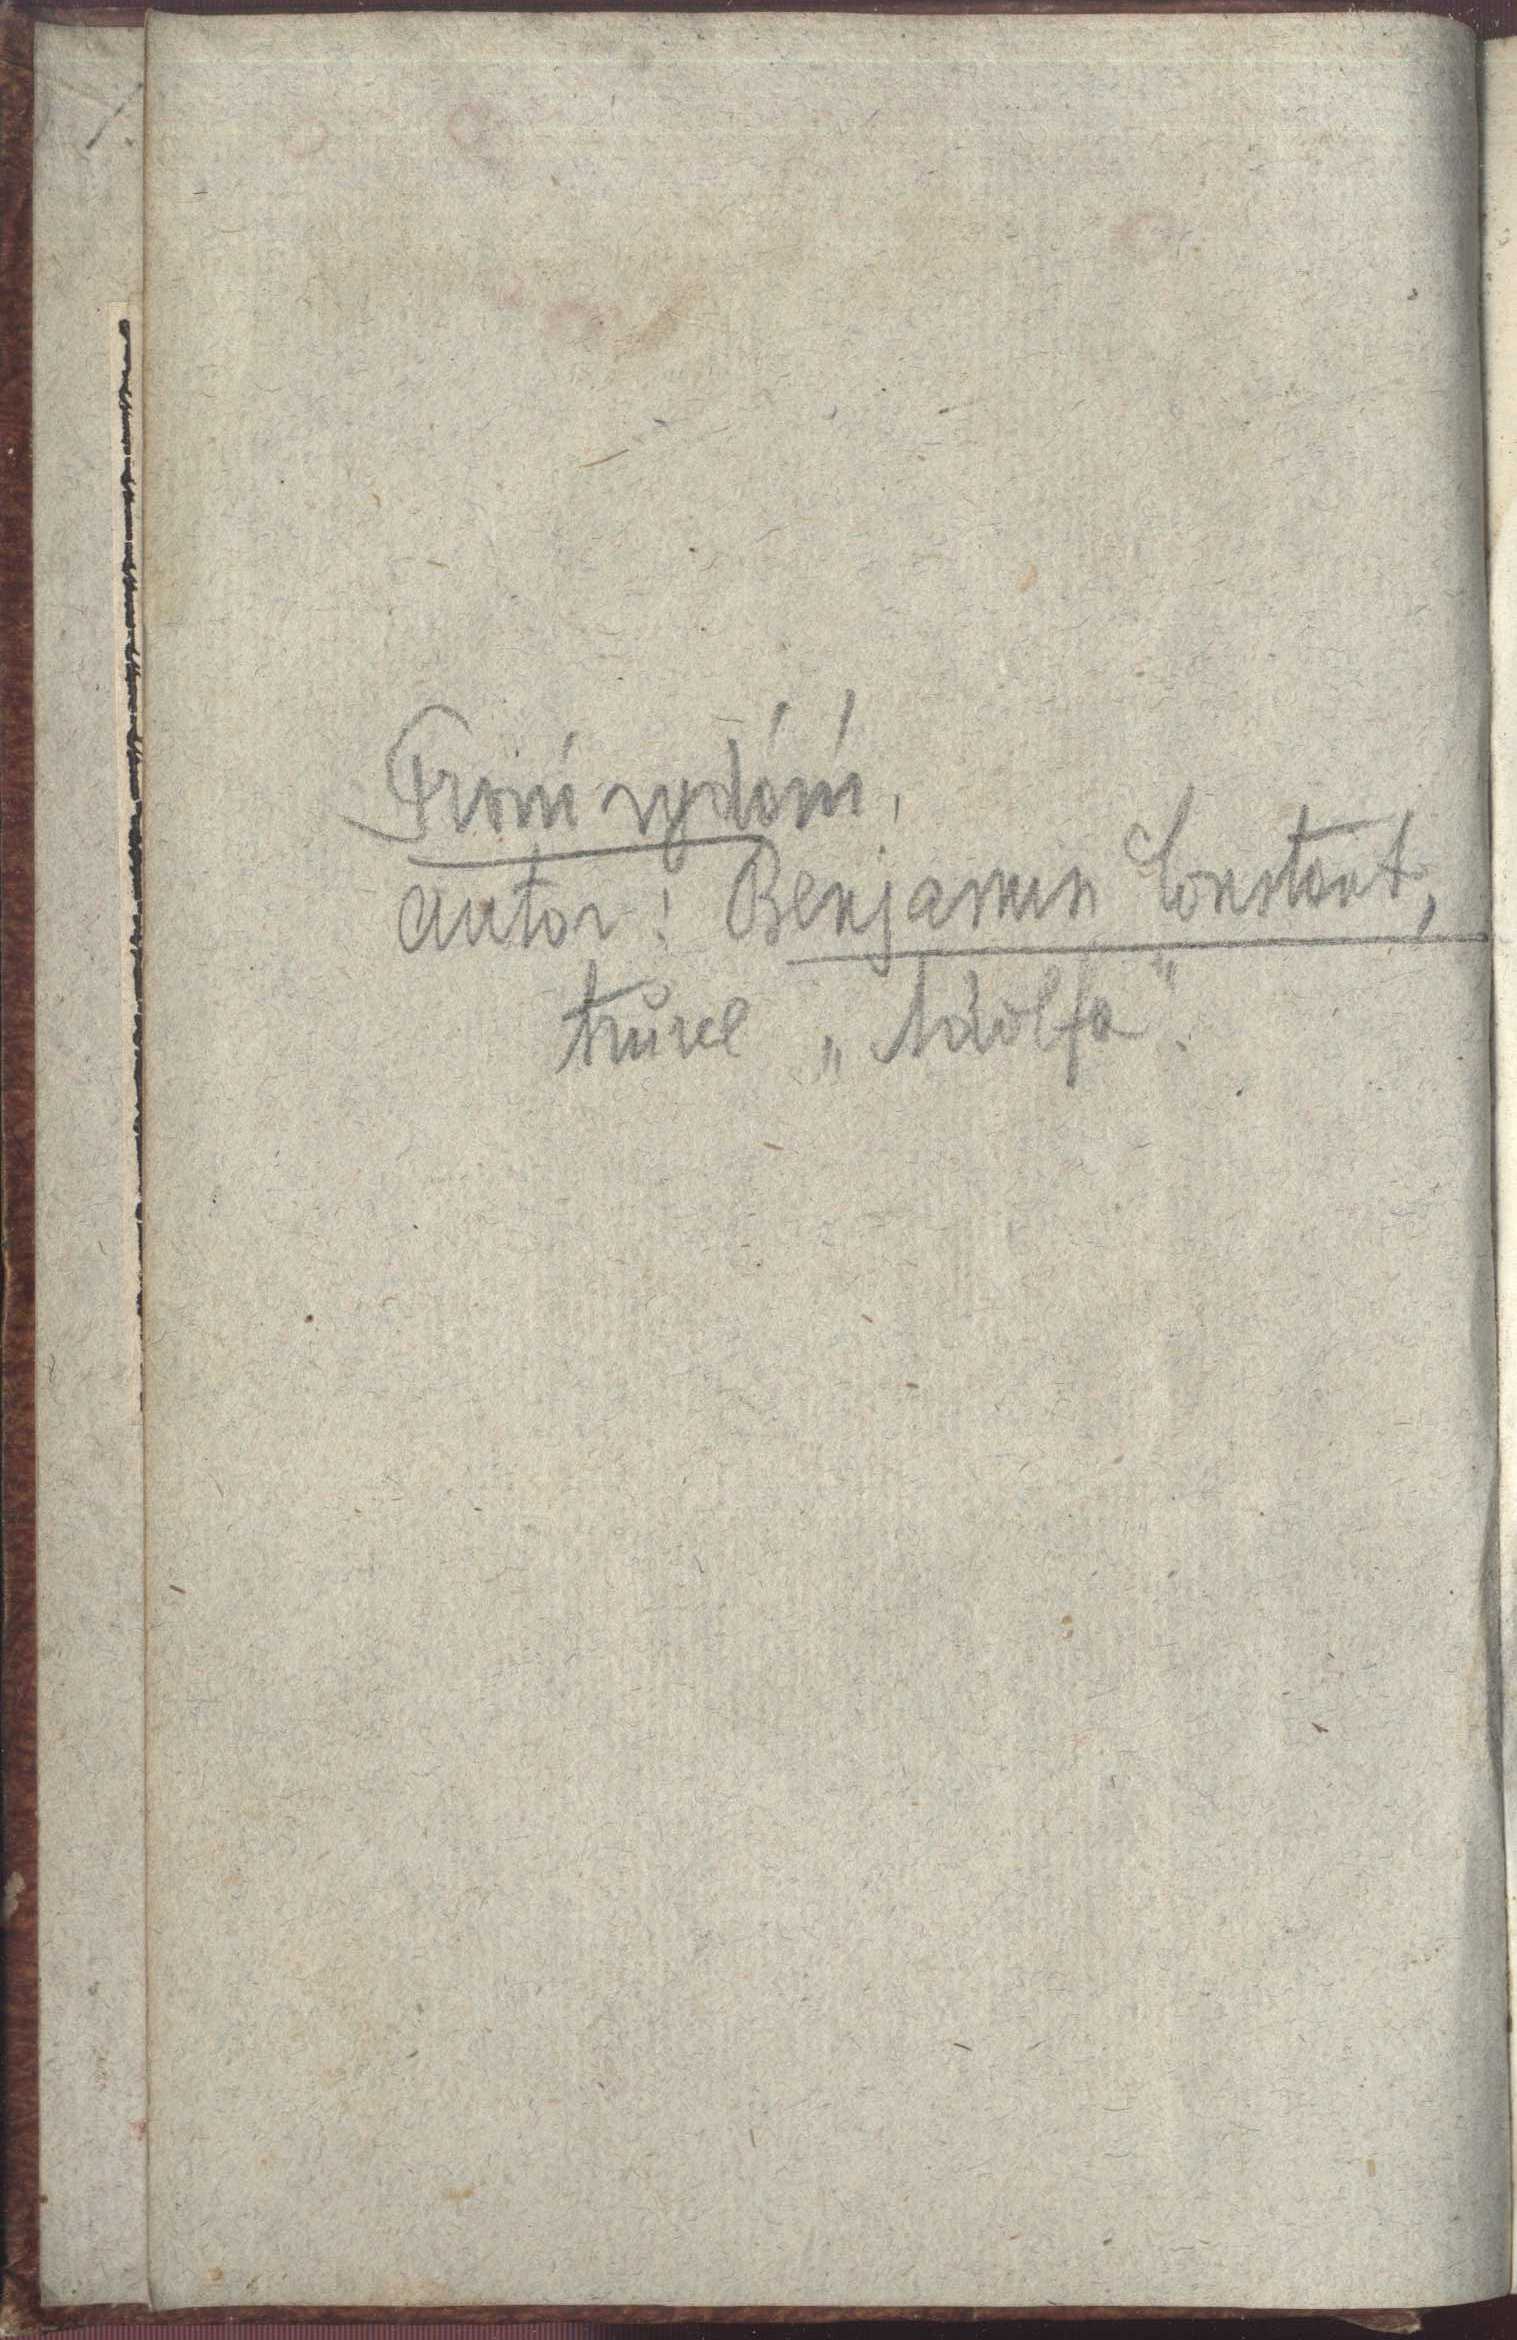 První vydání,
autor: Benjamin Constant,
tvůrce „Adolfa“.